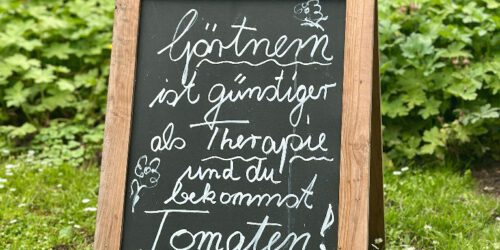 Gärtnern
ist günstiger
als Therapie
und du
bekommst
Tomaten!